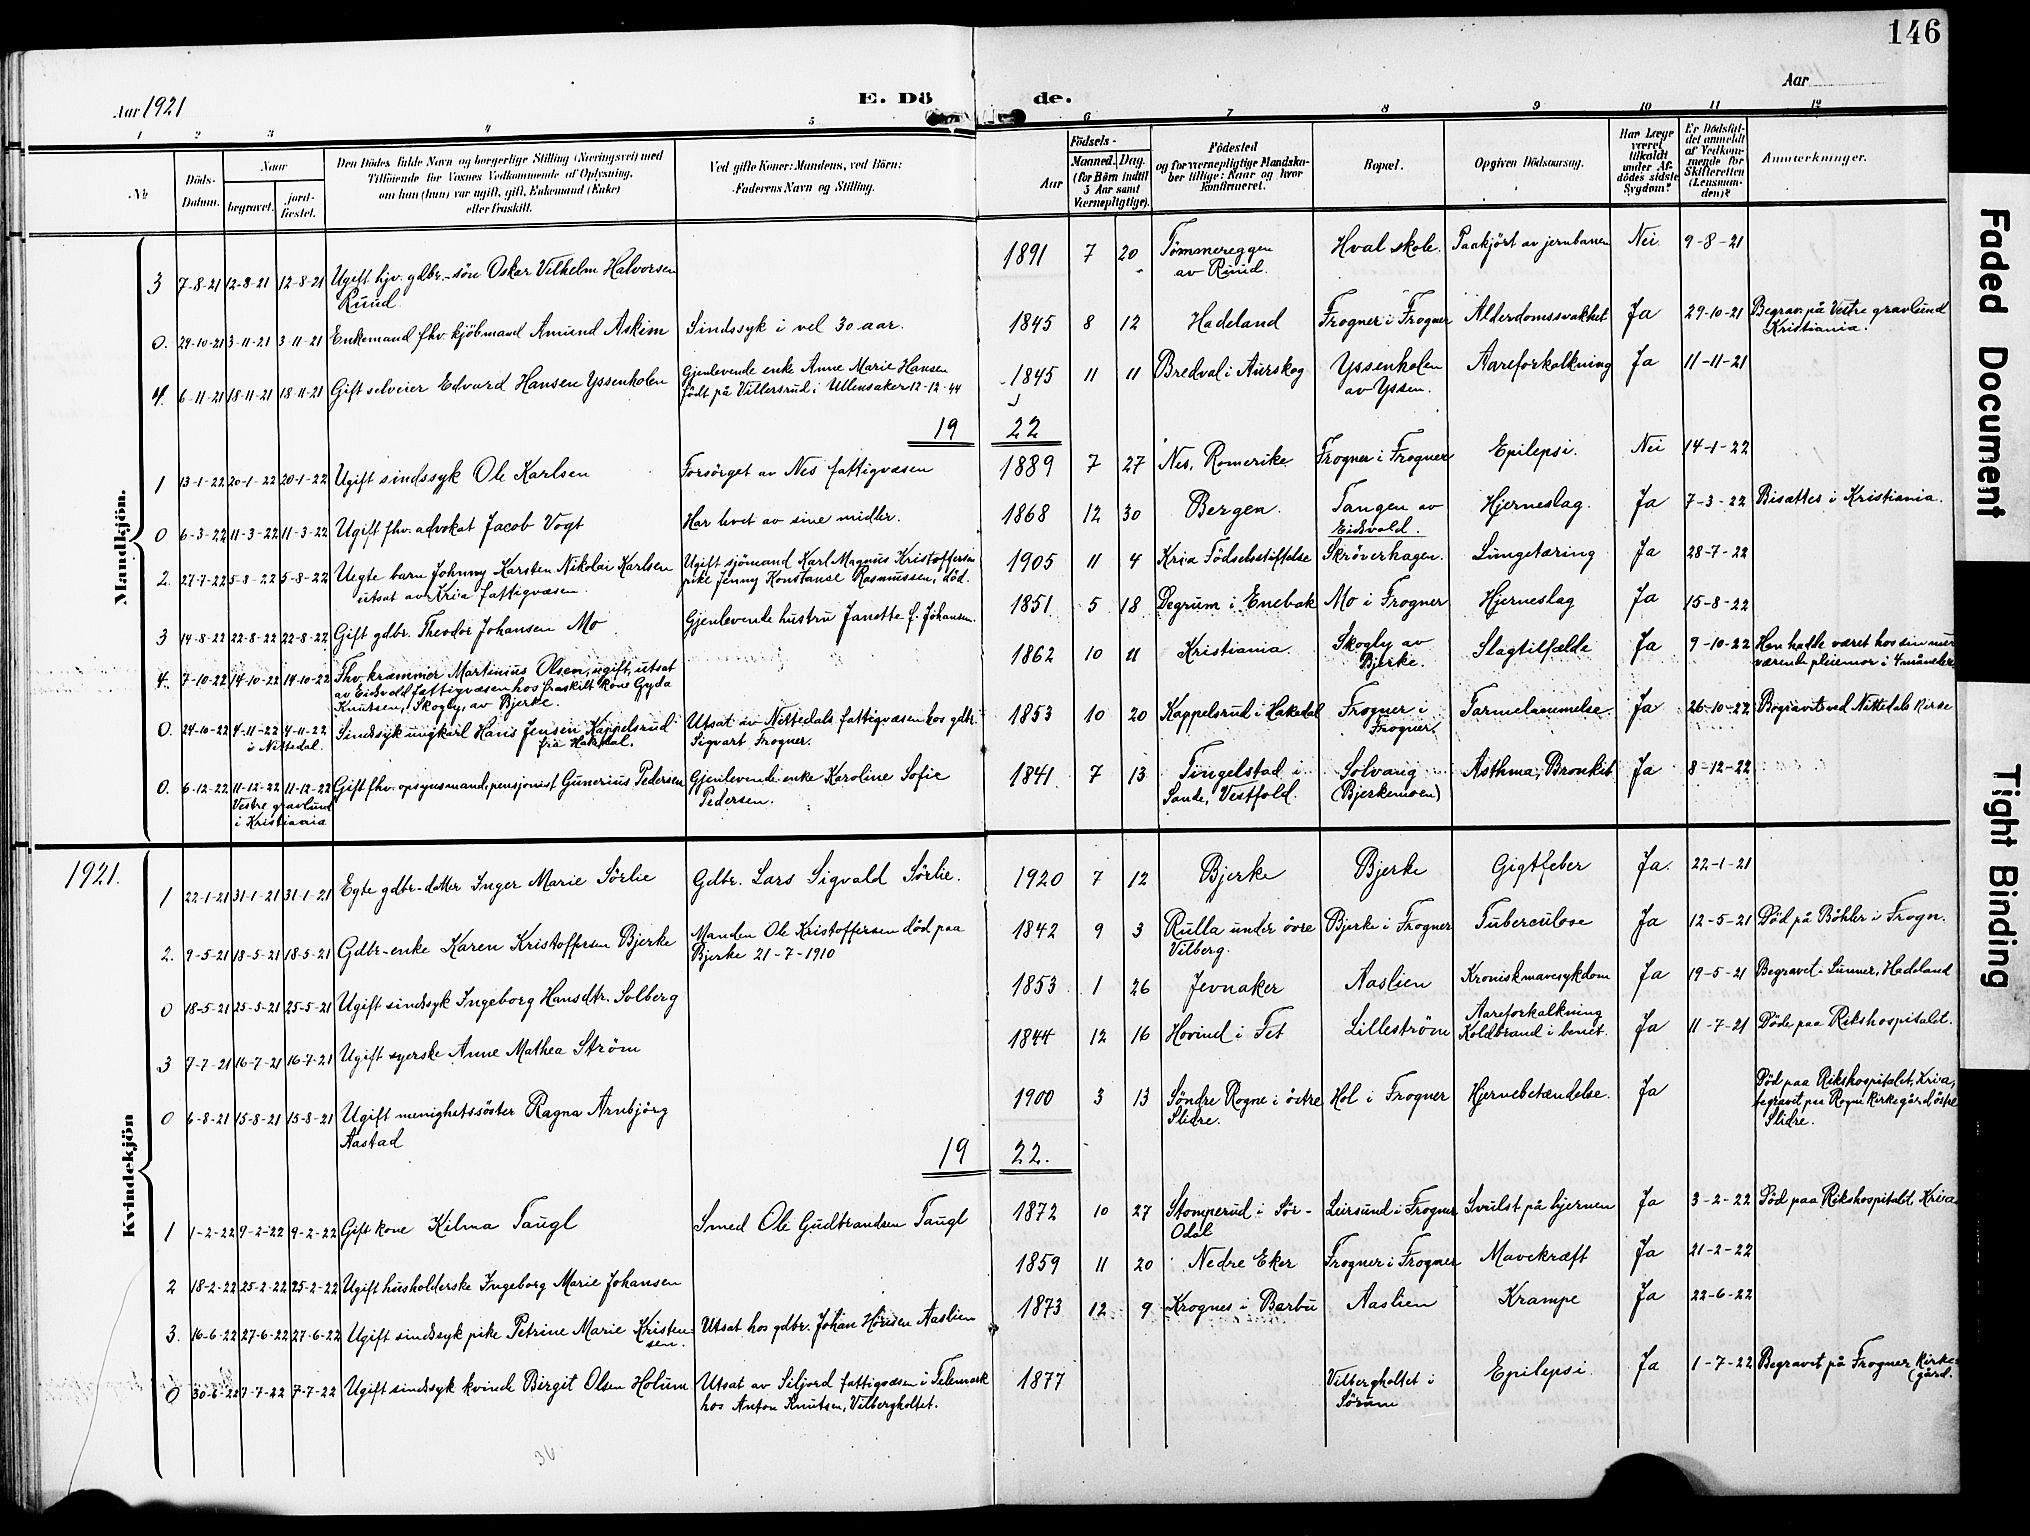 146
Aar 1921
E. Dö
de.
Aar
1 2 3 4 5 6 7 8 9 10 11 12
No
Döds-Datum.
Naar
begravet.
jord-fæstet.
Den Dödes fulde Navn og borgerlige Stilling (Næringsvei) med
Tilföiende for Voxnes Vedkommende af Oplysning,
om han (hun) var ugift, gift, Enkemand (Enke)
eller fraskilt.
Ved gifte Koner: Mandens, ved Börn:
Faderens Navn og Stilling.
Aar
Födsels-
Maaned. Dag.
(for Börn indtil
5 Aar samt
Værnepligtige).
Födested
og for værnepligtige Mandska-
ber tillige: Kaar og hvor
konfirmeret.
Bopæl.
Opgiven Dödsaarsag.
Har Læge
været
tilkaldt
under Af-
dödes sidste
Sygdom?
Er Dödsfal-
det anmeldt
af Vedkom-
mende for
Skifteretten
(Lensman-
den)?
Anmærkninger.
Mandkjön.
3 7-8-21 12-8-21 12-8-21 Ugift hjv. gdbr.-sön Oskar Vilhelm Halvorsen
Ruud
1891 7 20 Tömmereggen
av Ruud.
Hval skole. Paakjört av jernbanen Nei 9-8-21
0. 24-10-21 3-11-21 3-11-21 Enkemand fhv. kjöbmand Amund Askim Sindssyk i vel 30 aar. 1845 8 12 Hadeland Frogner i Frogner Alderdomssvakhet Ja 29-10-21 Begrav. på Vestre gravlund
Kristiania.
4. 6-11-21 18-11-21 18-11-21 Gift selveier Edvard Hansen Yssenholen Gjenlevende enke Anne Marie Hansen
født på Villersrud i Ullensaker 12-12-44
1845 11 11 Bredval i Aurskog Yssenholen
av Yssen.
Aareforkalkning Ja 11-11-21
19 22
1 13-1-22 20-1-22 20-1-22 Ugift sindssyk Ole Karlsen Forsörget av Nes fattigvæsen 1889 7 27 Nes, Romerike Frogner i Frogner Epilepsi. Nei 14-1-22
0 6-3-22 11-3-22 11-3-22 Ugift fhv. advokat Jacob Vogt Har levet av sine midler. 1868 12 30 Bergen. Tangen av
Eidsvold.
Hjerneslag. Ja 7-3-22 Bisættes i Kristiania.
2. 27-7-22 5-8-22 5-8-22 Uegte barn Johnny Karsten Nikolai Karlsen
utsat av Kria fattigvæsen.
Ugift sjömand Karl Magnus Kristoffersen
pike Jenny Konstanse Rasmussen, död.
1905 11 4 Kria Födselsstiftelse Skröverhagen. Lungetæring Ja 28-7-22
3 14-8-22 22-8-22 22-8-22 Gift gdbr. Theodor Johansen Mo Gjenlevende hustru Janette f. Johansen. 1851 5 18 Degrum i Enebak Mo i Frogner Hjerneslag Ja 15-8-22
4. 7-10-22 14-10-22 14-10-22 Fhv. kræmmer Martinius Olsen, ugift, utsat
av Eidsvold fattigvæsen hos fraskilt kone Gyda
Knutsen, Skogby, av Bjerke.
1862 10 11 Kristiania. Skogly av
Bjerke.
Slagtilfælde Ja 9-10-22 Han hadde været hos sin nu-
værende pleiemor i 4 måneder
0. 24-10-22 4-11-22 4-11-22
i Nittedal.
Sindssyk ungkarl Hans Jensen Kappelsrud
fra Hakedal.
Utsat av Nittedals fattigvæsen hos gdbr.
Sigvart Frogner.
1853 10 20 Kappelsrud i Hakedal Frogner i
Frogner.
Tarmelammelse. Ja 26-10-22 Begravet ved Nittedals kirke
0. 6-12-22 11-12-22 11-12-22
Vestre gravlund
i Kristiania
Gift fhv. opsynsmand, pensjonist Gunerius Pedersen Gjenlevende enke Karoline Sofie
Pedersen.
1841 7 13 Tingelstad i
Sande, Vestfold.
Solvang
(Bjerkemoen)
Asthma, Bronkit Ja 8-12-22
Kvindekjön
1921.
1 22-1-21 31-1-21 31-1-21 Egte gdbr-datter Inger Marie Sörlie Gdbr. Lars Sigvald Sörlie. 1920 7 12 Bjerke Bjerke Gigtfeber Ja. 22-1-21
2. 9-5-21 18-5-21 18-5-21 Gdbr-enke Karen Kristoffersen Bjerke Manden Ole Kristoffersen död paa
Bjerke 21-7-1910
1842 9 3 Rulla under övre
Vilberg.
Bjerke i Frogner Tuberculose Ja 12-5-21 Död på Böhler i Frogn.
0 18-5-21 25-5-21 25-5-21 Ugift sindssyk Ingeborg Hansdtr. Solberg 1853 1 26 Jevnaker Aaslien Kronisk mavesykdom Ja 19-5-21 Begravet i Lunner, Hadeland
3 7-7-21 16-7-21 16-7-21 Ugift syerske Anne Mathea Ström 1844 12 16 Hovind i Fet Lilleström Aareforkalkning
Koldbrand i benet.
Ja 11-7-21 Döde paa Rikshospitalet.
0 6-8-21 15-8-21 15-8-21 Ugift menighetssöster Ragna Arnbjörg
Aastad
1900 3 13 Söndre Rogne i östre
Slidre.
Hol i Frogner Hjernebetændelse. Ja Död paa Rikshospitalet, Kria,
begravet paa Rogne kirkegård, östre
Slidre.
19 22.
1 1-2-22 9-2-22 9-2-22 Gift kone Kilma Taugl Smed Ole Gudbrandsen Taugl 1872 10 27 Stomperud i Sör-
Odal
Leirsund i Frogner Svulst på hjernen Ja 3-2-22 Död paa Rikshospitalet, Kria
2 18-2-22 25-2-22 25-2-22 Ugift husholderske Ingeborg Marie Johansen 1859 11 20 Nedre Eker Frogner i Frogner Mavekræft Ja 21-2-22
3. 16-6-22 27-6-22 27-6-22 Ugift sindssyk pike Petrine Marie Kristen-
sen.
Utsat hos gdbr. Johan Hörsen Aaslien 1873 12 9 Krognes i Barbu Aaslien Krampe Ja 22-6-22
0 30-6-22 7-7-22 7-7-22 Ugift sindssyk kvinde Birgit Olsen Holum Utsat av Siljord fattigvæsen i Telemark
hos Anton Knutsen, Vilbergholtet.
1877 Vilbergholtet i
Sörum
Epilepsi. Ja 1-7-22 Begravet på Frogner kirke-
gård.
36
Faded Document
Tight Binding